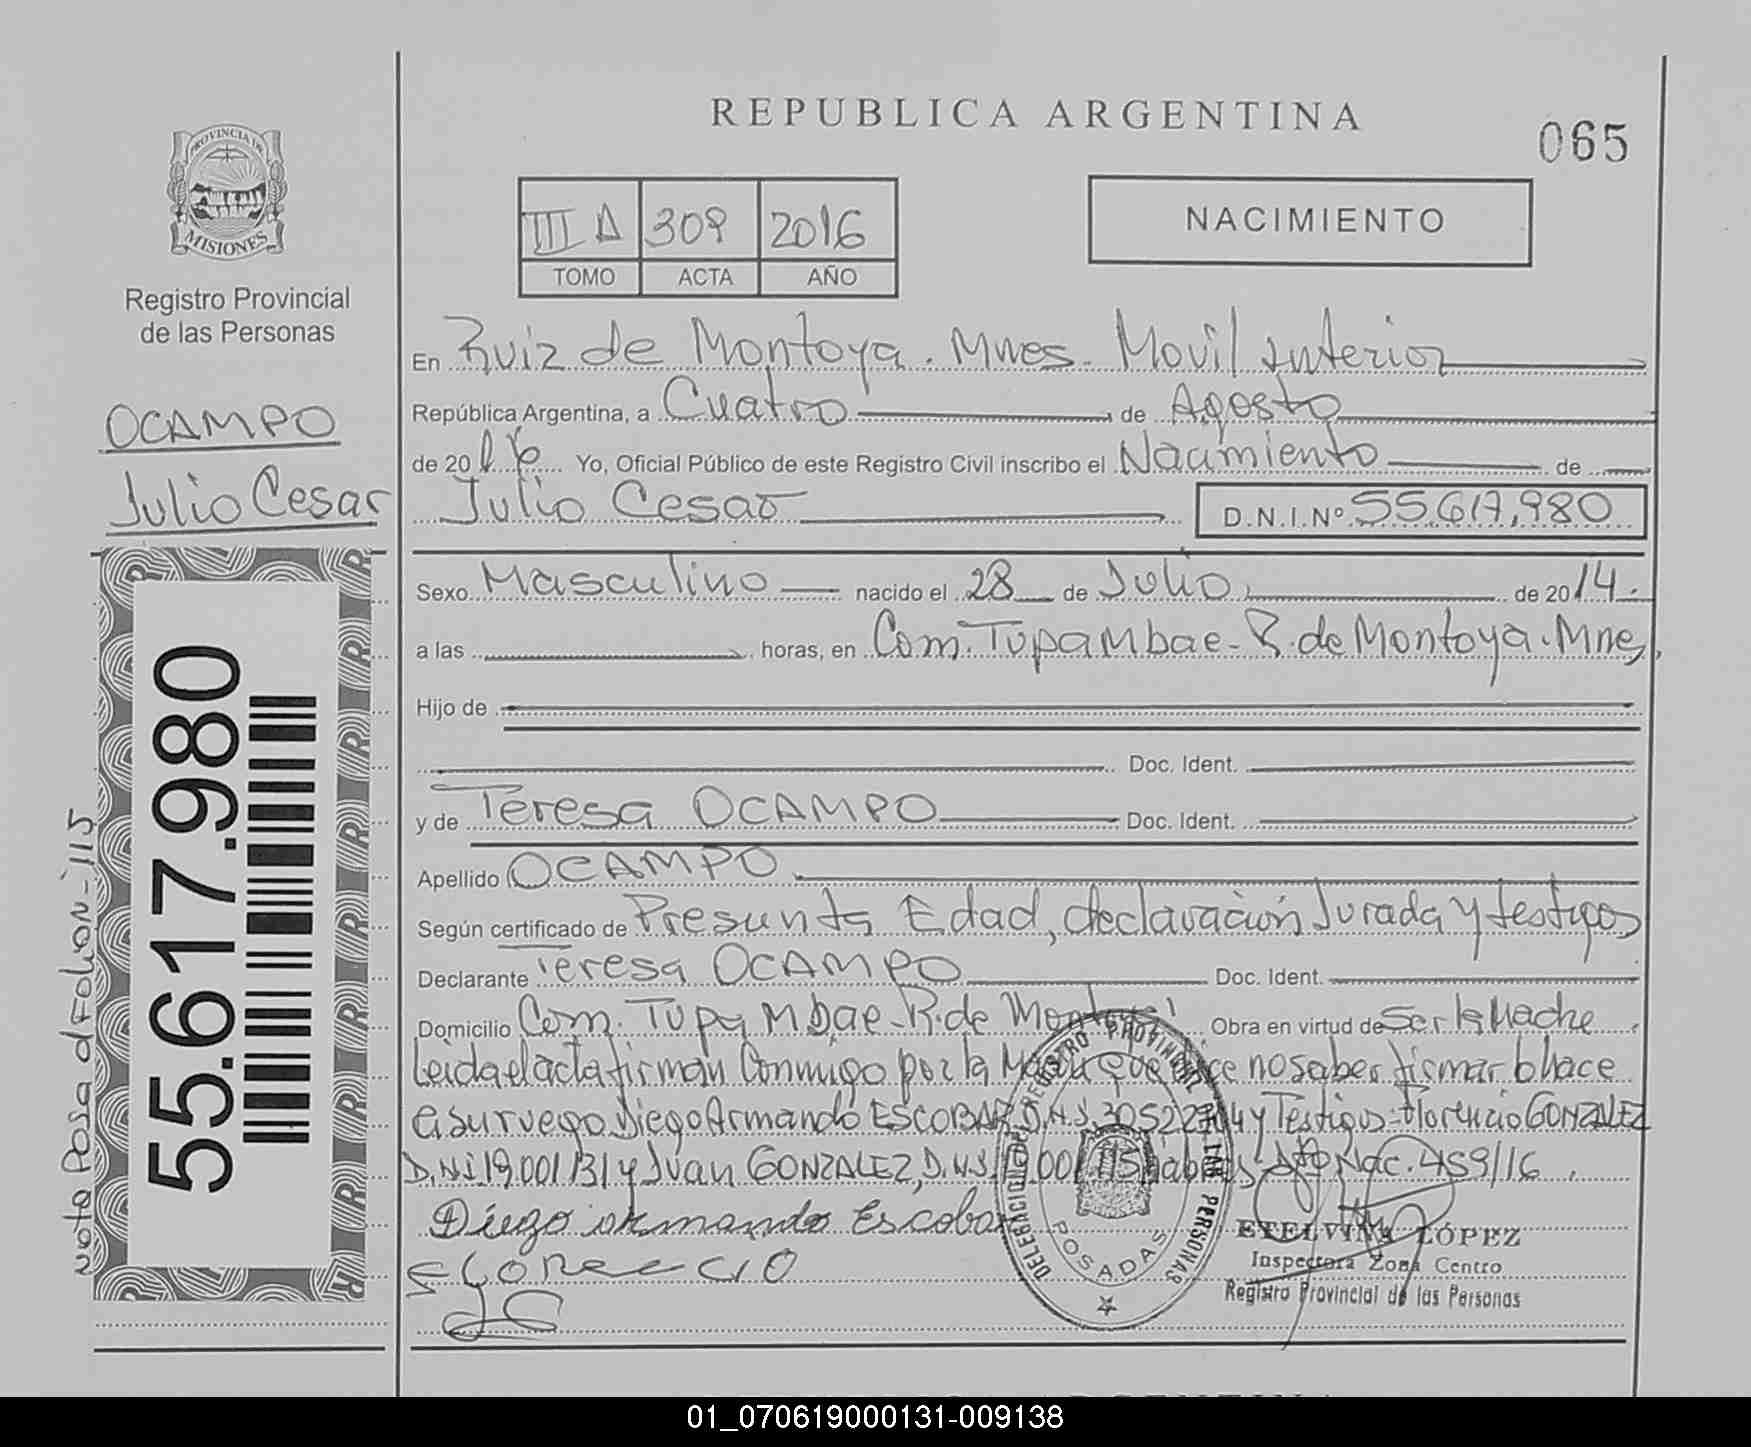 REPUBLICA ARGENTINA
065
PROVINCIA DE
MISIONES
Registro Provincial
de las Personas
III A 309 2016
TOMO ACTA AÑO
NACIMIENTO
OCAMPO
Julio Cesar
55.617.980
Nota Posa d Folio N-115
En Ruiz de Montoya. Mnes. Movil Interior
República Argentina, a Cuatro de Agosto
de 2016 Yo, Oficial Público de este Registro Civil inscribo el Nacimiento de
Julio Cesar D.N.I.Nº 55.617,980
Sexo Masculino nacido el 28 de Julio de 2014.
a las horas, en Com. Tupa Mbae - R. de Montoya. Mnes,
Hijo de
Doc. Ident.
y de Teresa OCAMPO Doc. Ident.
Apellido OCAMPO
Según certificado de Presunta Edad, declaración Jurada y testigos
Declarante Teresa OCAMPO Doc. Ident.
Domicilio Com. Tupa Mbae - R. de Montoya Obra en virtud de Ser la Madre
Leida el acta firman Conmigo por la que dice no saber firmar lo hace
a su ruego Diego Armando ESCOBAR D.N.I. y Testigos: Florencio GONZALEZ
D.N.I 19.001131 y Juan GONZALEZ, D.N.I. Nac. 459/16
Diego armando Escobar
DELEGACIONES REGISTRO PROVINCIAL DE LAS PERSONAS
POSADAS
ETELVINA LÓPEZ
Inspectora Zona Centro
Registro Provincial de las Personas
01_070619000131-009138